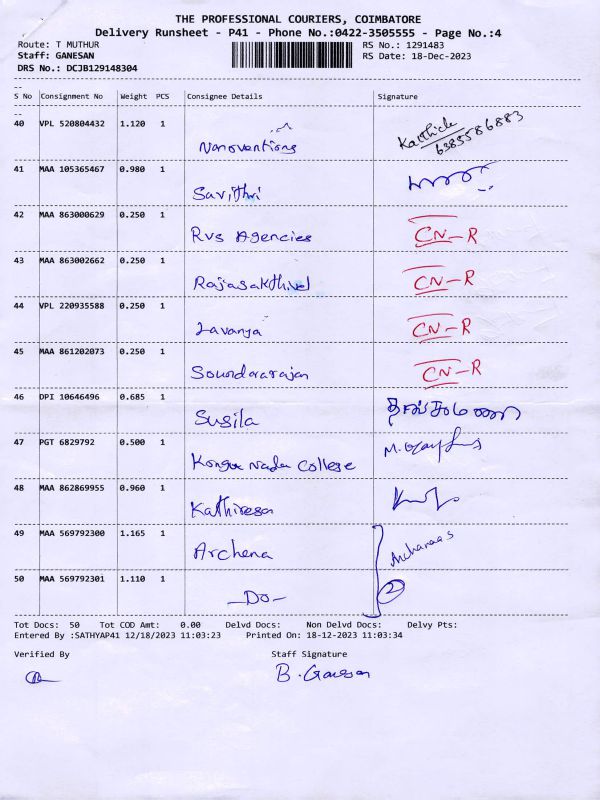 THE PROFESSIONAL COURIERS, COIMBATORE
Delivery Runsheet - P41 - Phone No.:0422-3505555 - Page No.:4
Route: T MUTHUR RS No.: 1291483
Staff: GANESAN RS Date: 18-Dec-2023
DRS No.: DCJB129148304
S No Consignment No Weight PCS Consignee Details Signature
40 VPL 520804432 1.120 1 Nanoventions Karthick 6385586883
41 MAA 105365467 0.980 1 Savithri
42 MAA 863000629 0.250 1 Rvs Agencies CN-R
43 MAA 863002662 0.250 1 Rajasakthivel CN-R
44 VPL 220935588 0.250 1 Lavanya CN-R
45 MAA 861202073 0.250 1 Soundararajan CN-R
46 DPI 10646496 0.685 1 Susila
47 PGT 6829792 0.500 1 Kongu Nadu College
48 MAA 862869955 0.960 1 Kathiresan
49 MAA 569792300 1.165 1 Archena Archanaa S
50 MAA 569792301 1.110 1 -Do- 2
Tot Docs: 50 Tot COD Amt: 0.00 Delvd Docs: Non Delvd Docs: Delvy Pts:
Entered By :SATHYAP41 12/18/2023 11:03:23 Printed On: 18-12-2023 11:03:34
Verified By Staff Signature
B. Ganesan